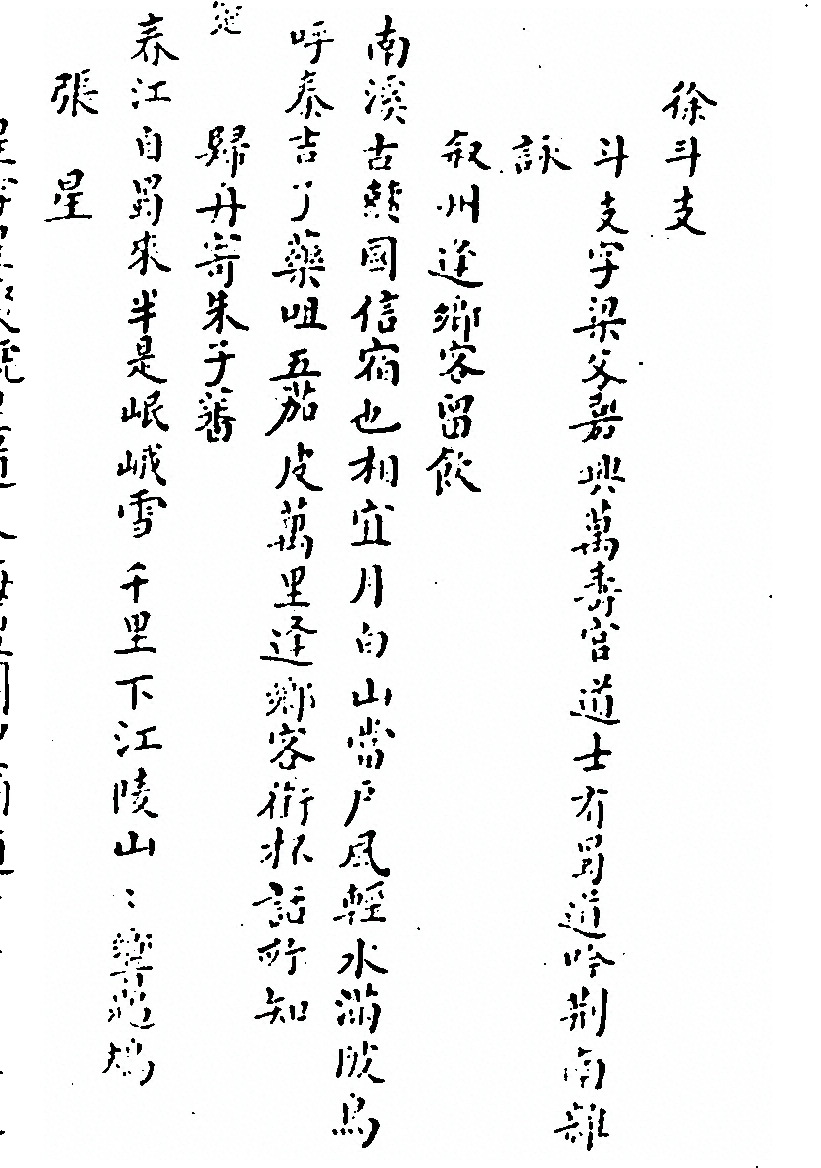 徐斗支
斗支字梁父嘉興萬壽宮道士有蜀道吟荆南雜
詠
叙州逢鄉客留飲
南溪古僰國信宿也相宜月白山當戶風輕水滿陂鳥
呼泰吉了藥咀五茄皮萬里逢鄉客銜杯話所知
歸舟寄朱子蕃
春江自蜀來半是岷峨雪千里下江陵山〻響
張星